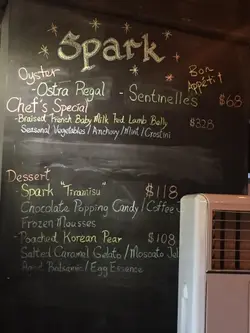 Spark
Bon
Appétit
Oyster
-Ostra Regal - Sentinelles $68
Chef's Special
-Braised French Baby Milk Fed Lamb Belly
Seasonal Vegetables / Anchovy / Mint / Crostini $328
Dessert
- Spark "Tiramisu" $118
Chocolate Popping Candy / Coffee
Frozen Mousses
-Poached Korean Pear $108
Salted Caramel Gelato / Moscato Jel
Aged Balsamic / Egg Essence